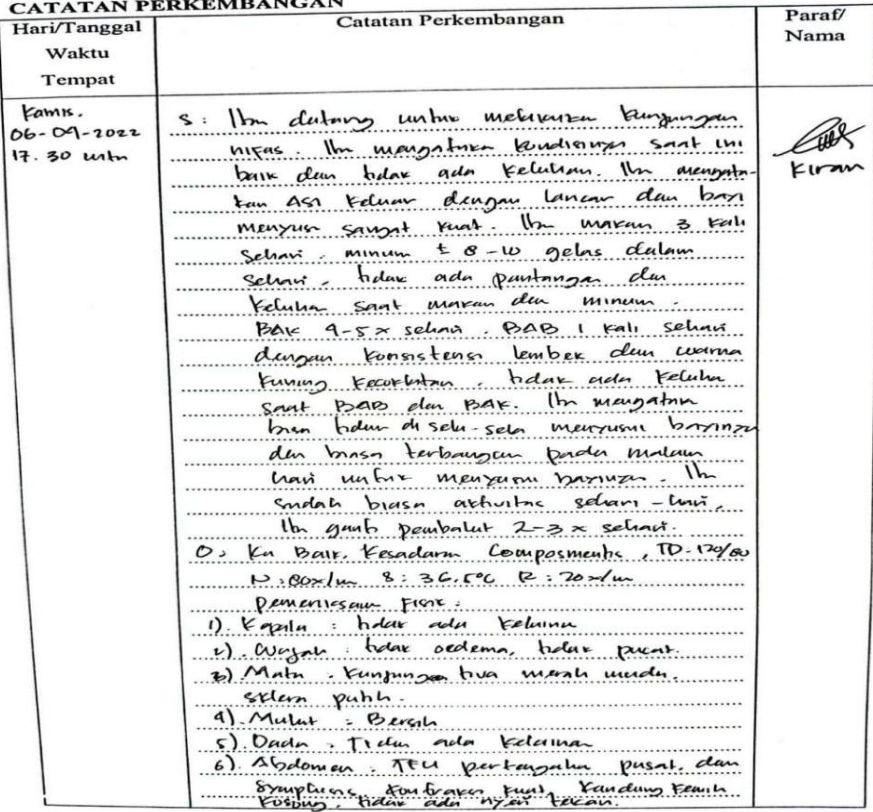 CATATAN PERKEMBANGAN
Hari/Tanggal
Waktu
Tempat
Catatan Perkembangan
Paraf/
Nama
Kamis,
06-09-2022
17.30 wita
Kiran
S : Ibu datang untuk melakukan kunjungan
nifas. Ibu mengatakan kondisinya saat ini
baik dan tidak ada keluhan. Ibu mengata-
kan ASI keluar dengan lancar dan bayi
menyusu sangat kuat. Ibu makan 3 kali
sehari, minum ± 8-10 gelas dalam
sehari, tidak ada pantangan dan
keluhan saat makan dan minum.
BAK 4-5x sehari. BAB 1 kali sehari
dengan konsistensi lembek dan warna
kuning kecoklatan. tidak ada keluhan
saat BAB dan BAK. Ibu mengatakan
bisa tidur di sela-sela menyusui bayinya
dan biasa terbangun pada malam
hari untuk menyusui bayinya. Ibu
sudah biasa aktivitas sehari-hari,
Ibu ganti pembalut 2-3 x sehari.
O : Ku Baik, Kesadaran Composmentis, TD: 120/80
N : 80x/m S : 36,5°C R : 20x/m
Pemeriksaan Fisik :
1). Kepala : tidak ada kelainan
2). Wajah : tidak oedema, tidak pucat.
3). Mata : Kunjungtiva merah muda,
sklera putih.
4). Mulut : Bersih
5). Dada : Tidak ada kelainan
6). Abdomen : TFU pertengahan pusat, dan
symphisis, kontraksi kuat, kandung kemih
kosong, tidak ada nyeri tekan.